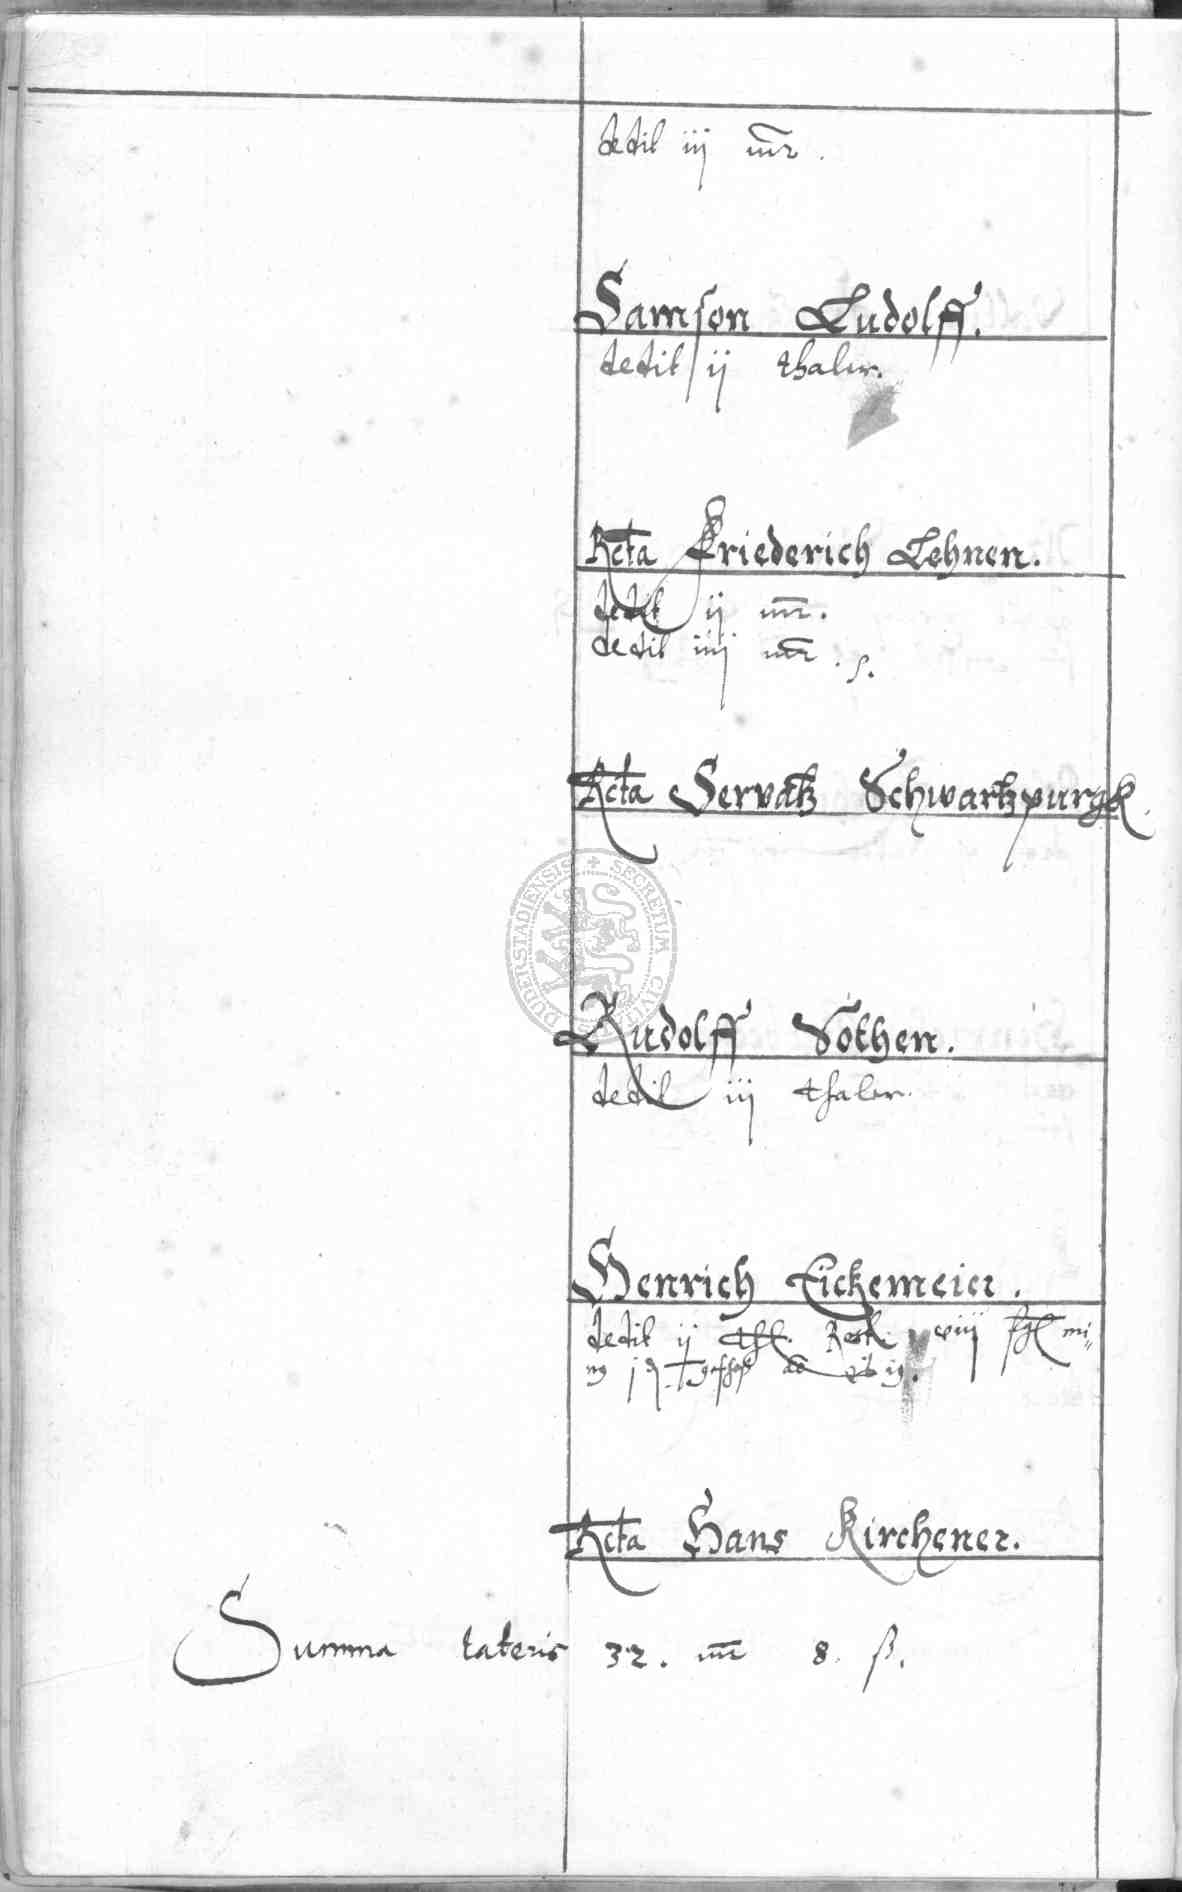 dedit iij mr.
Samson Ludolff.
dedit ij thaler.
Rcta Friederich Lehnen.
dedit ij mr.
dedit iiij mr. s.
Rcta Servatz Schwartzpurgk.
SECRETUM CIVITATIS DUDERSTADIENSIS
Rudolff Sothen.
dedit iij thaler.
Henrich Eickemeier.
dedit ij thl. Rest. viij
Rcta Hans Kirchener.
Summa lateris 32. mr 8. ß.